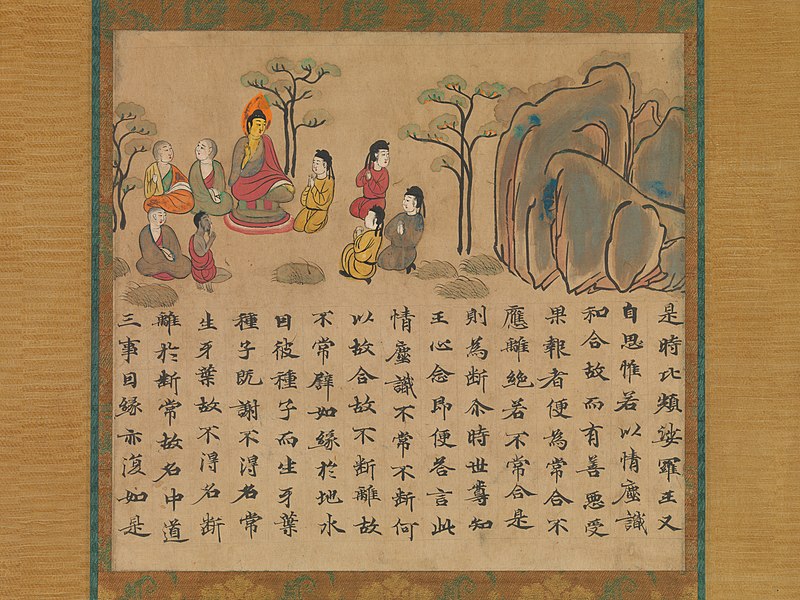 是時比類娑羅王又
自思惟若以情塵識
和合故而有善惡受
果報者便為常合不
應離絕若不常合是
則為断尒時世尊知
王心念即便荅言此
情塵識不常不断何
以故合故不断離故
不常譬如緣於地水
因彼種子而生牙葉
種子既謝不得名常
生牙葉故不得名断
離於断常故名中道
三事因緣亦復如是